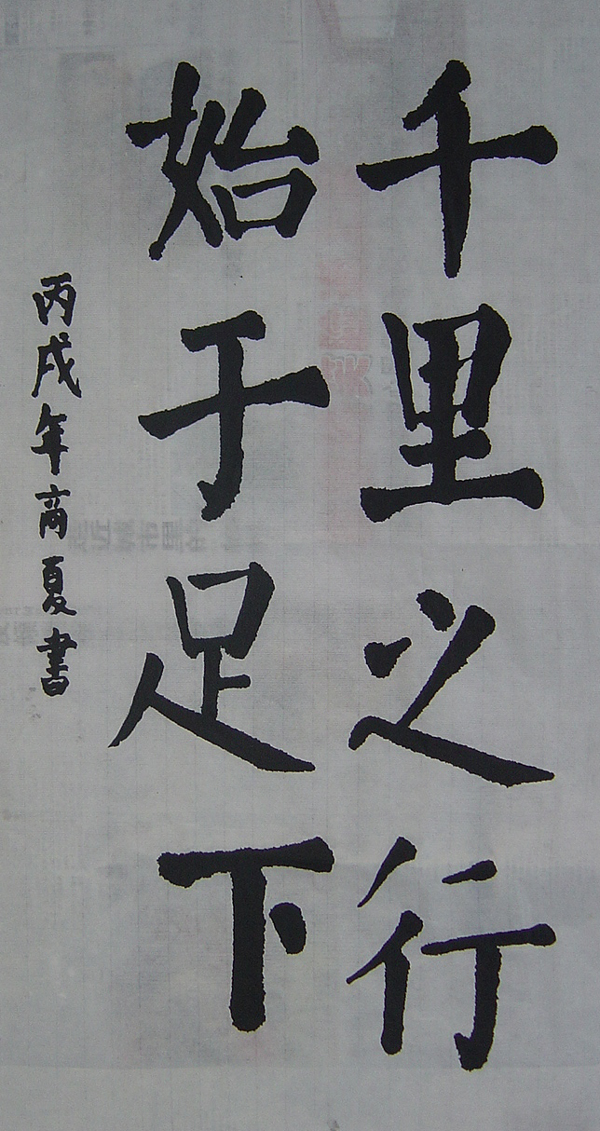 千里之行
始于足下
丙戌年高夏書